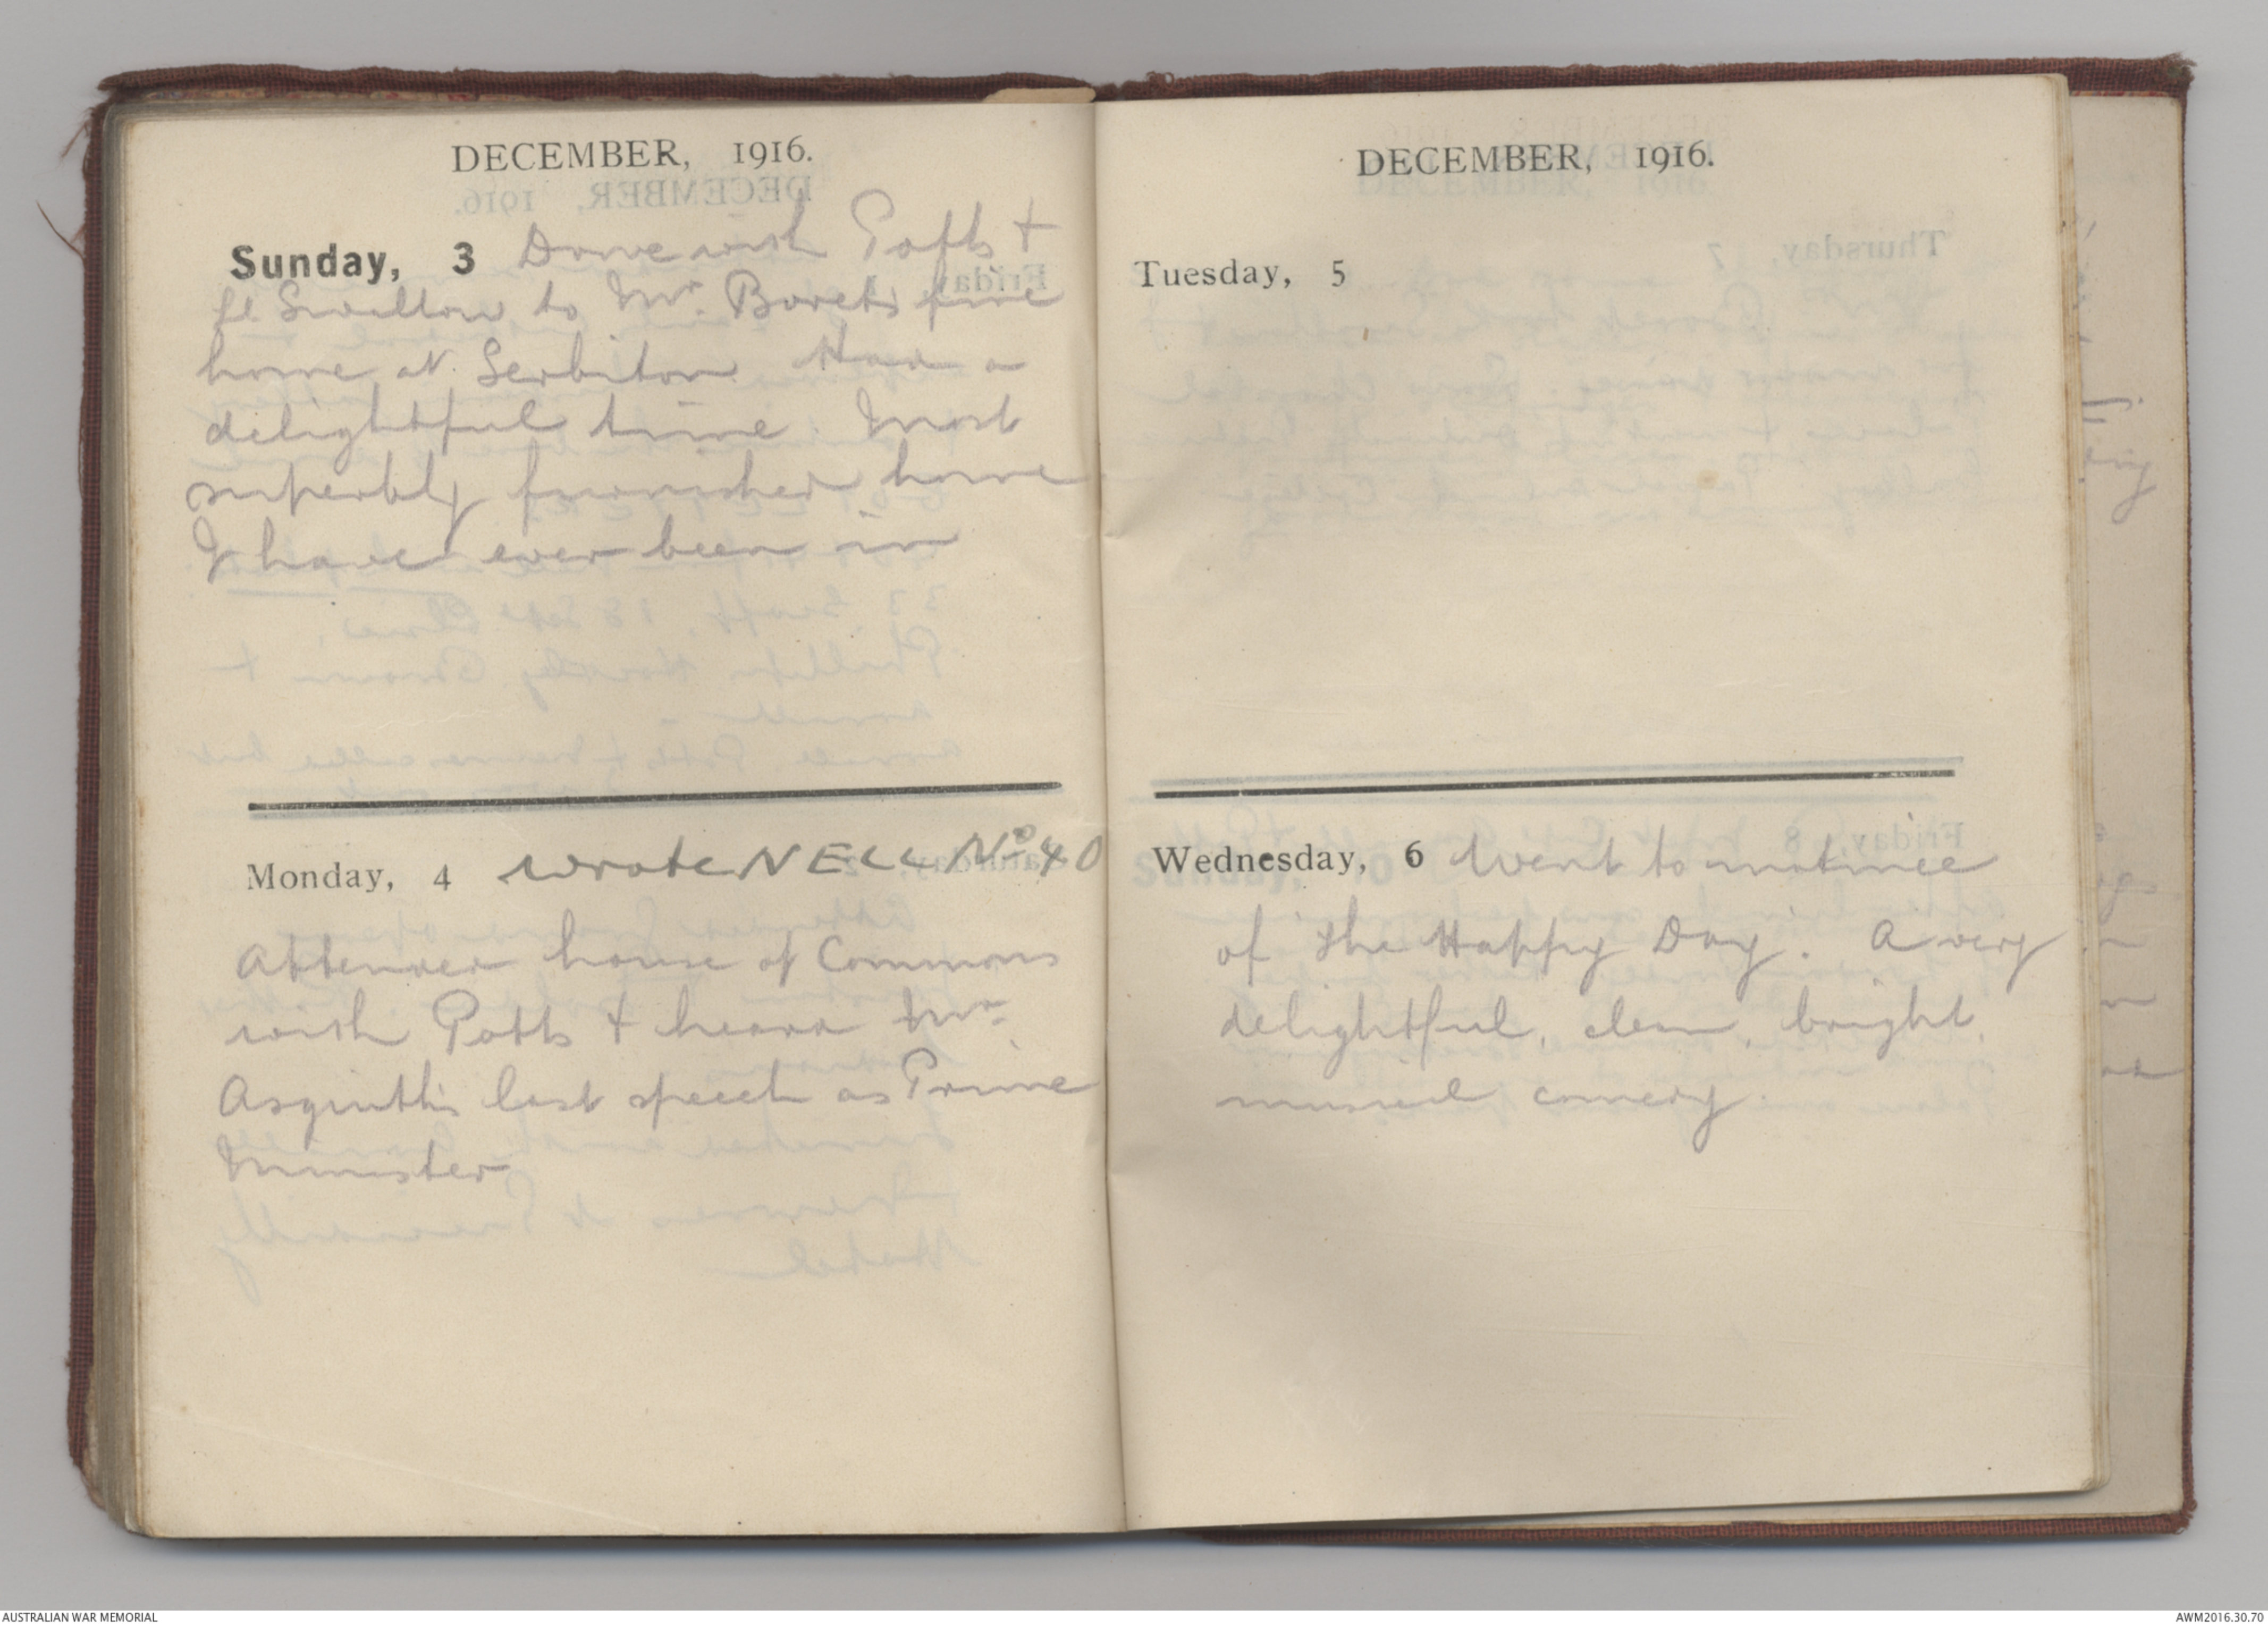 DECEMBER, 1916.
Sunday, 3 Drove with Potts +
to Mr. Boret's fine
home at Serbiton Had a
delightful time. Most
superbly furnished home
I have ever been in
Monday, 4 wrote NELL No 40
Attended house of Commons
with Potts + heard Mr.
Asquith's last speech as Prime
Minister
DECEMBER, 1916.
Tuesday, 5
Wednesday, 6 Went to matinee
of the Happy Day. A very
delightful, clean, bright,
musical comedy.
AUSTRALIAN WAR MEMORIAL
AWM2016.30.70